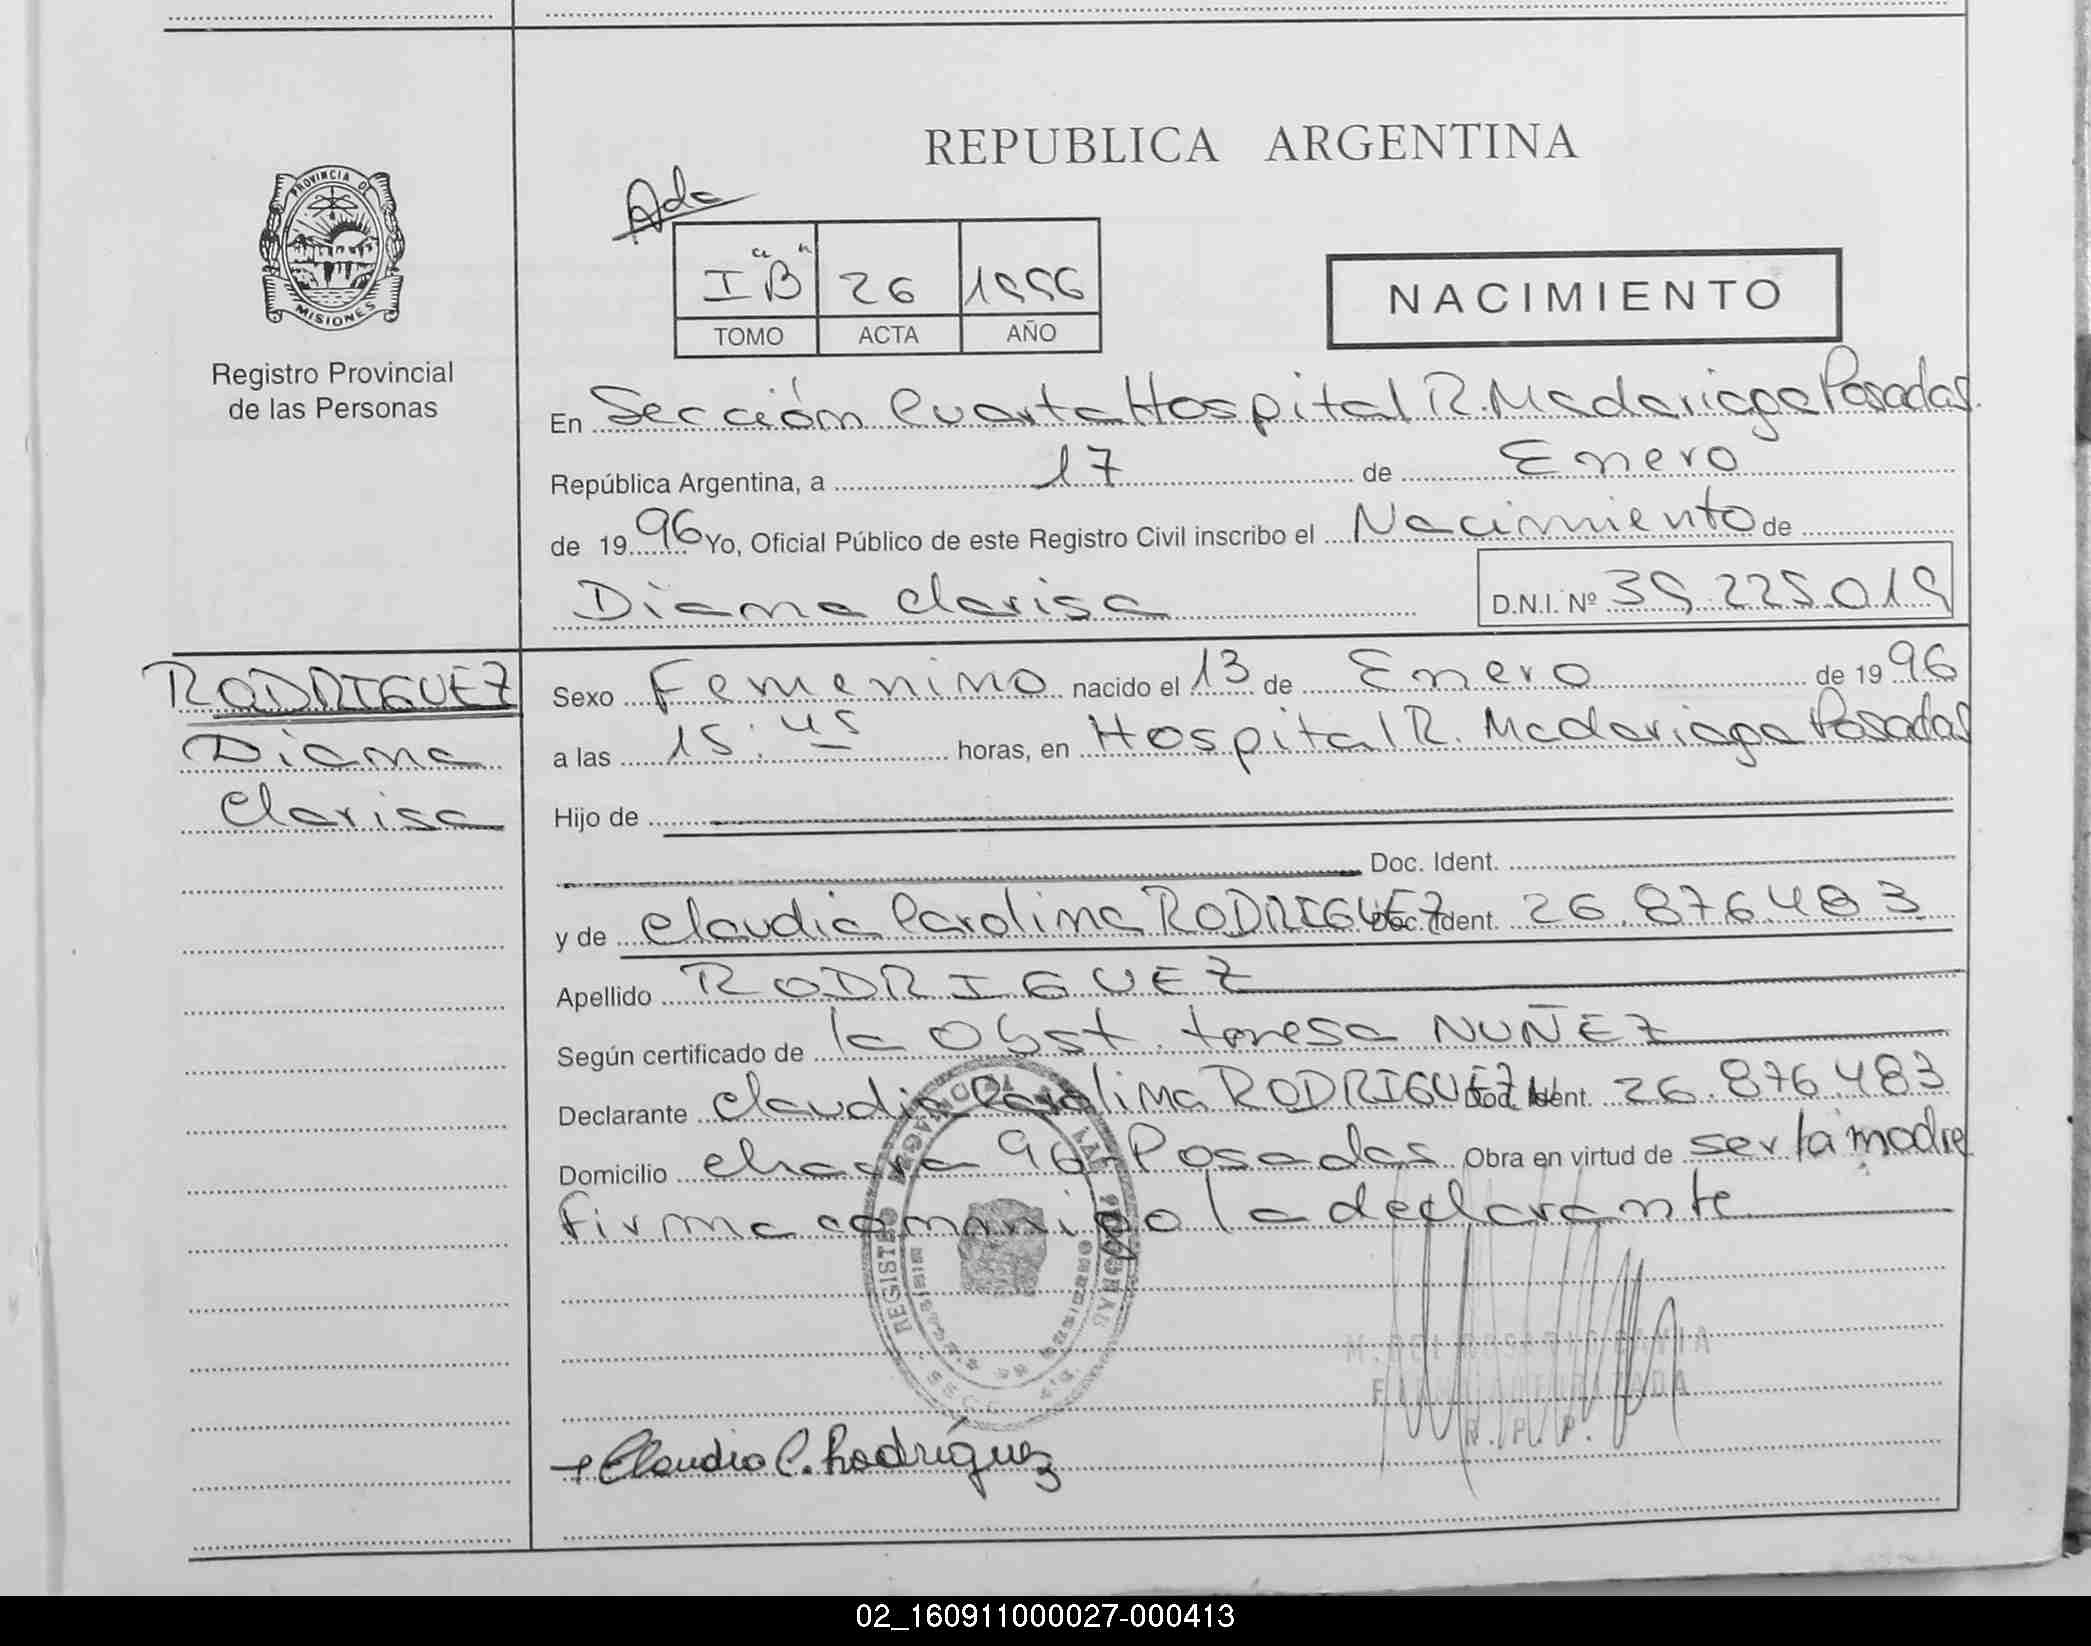 REPUBLICA ARGENTINA
PROVINCIA DE
MISIONES
Registro Provincial
de las Personas
Ada
I "B" 26 1996
TOMO ACTA AÑO
NACIMIENTO
En Sección Cuarta Hospital R. Madariaga Posadas.
República Argentina, a 17 de Enero
de 1996 Yo, Oficial Público de este Registro Civil inscribo el Nacimiento de
Diana Clarisa D.N.I. Nº 39.225.019
RODRIGUEZ
Diana
Clarisa
Sexo Femenino nacido el 13 de Enero de 1996
a las 15:45 horas, en Hospital R. Madariaga Posadas
Hijo de
Doc. Ident.
y de Claudia Carolina RODRIGUEZ Doc. Ident. 26.876.483
Apellido RODRIGUEZ
Según certificado de la Obst. teresa NUÑEZ
Declarante Claudia Carolina RODRIGUEZ Doc. Ident. 26.876.483
Domicilio chacra 96-Posadas Obra en virtud de ser la madre
firma conmigo la declarante
REGISTRO
R. P. P.
Claudia C. Rodríguez
02_160911000027-000413